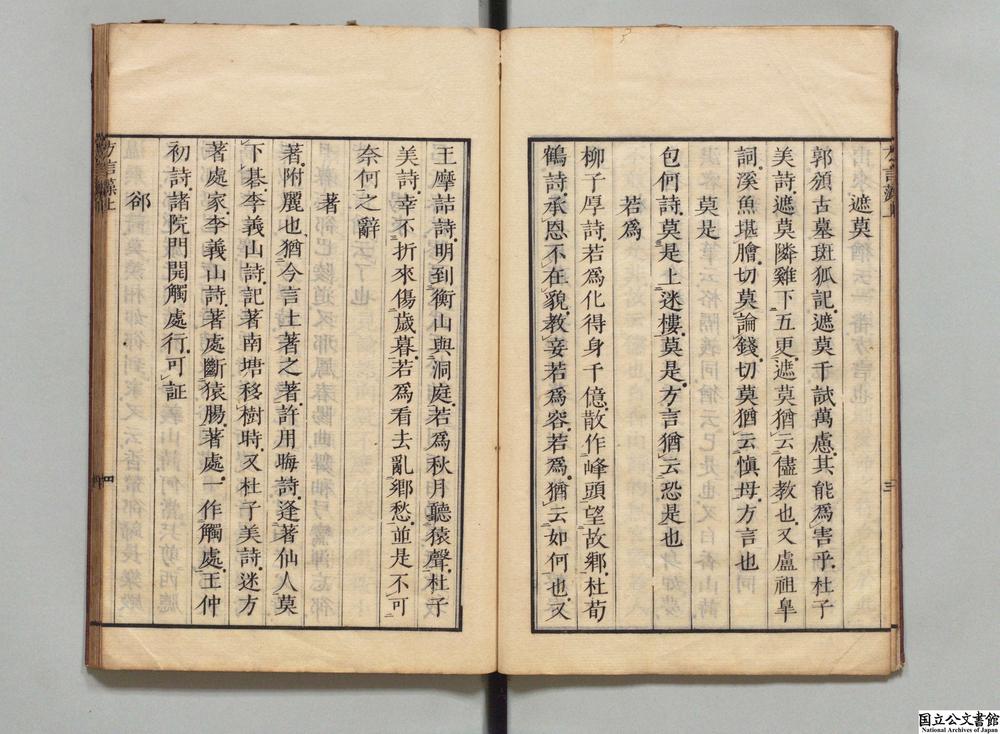 遮莫
郭頒古墓斑狐記遮莫千試萬慮其能爲害乎杜子
美詩遮莫隣雞下五更遮莫猶云儘教也又盧祖皐
詞溪魚堪膾切莫論錢切莫猶云愼毋方言也
莫是
包何詩莫是上迷樓莫是方言猶云恐是也
若爲
柳子厚詩若爲化得身千億散作峰頭望故鄉杜荀
鶴詩承恩不在貌教妾若爲容若爲猶云如何也又
三
王摩詰詩明到衡山與洞庭若爲秋月聽猿聲杜子
美詩幸不折來傷歲暮若爲看去亂鄉愁並是不可
奈何之辭
著
著附麗也猶今言土著之著許用晦詩逢著仙人莫
下碁李義山詩記著南塘移樹時又杜子美詩迷方
著處家李義山詩著處斷猿腸著處一作觸處王仲
初詩諸院門開觸處行可証
郤
方言藻上
四
国立公文書館
National Archives of Japan